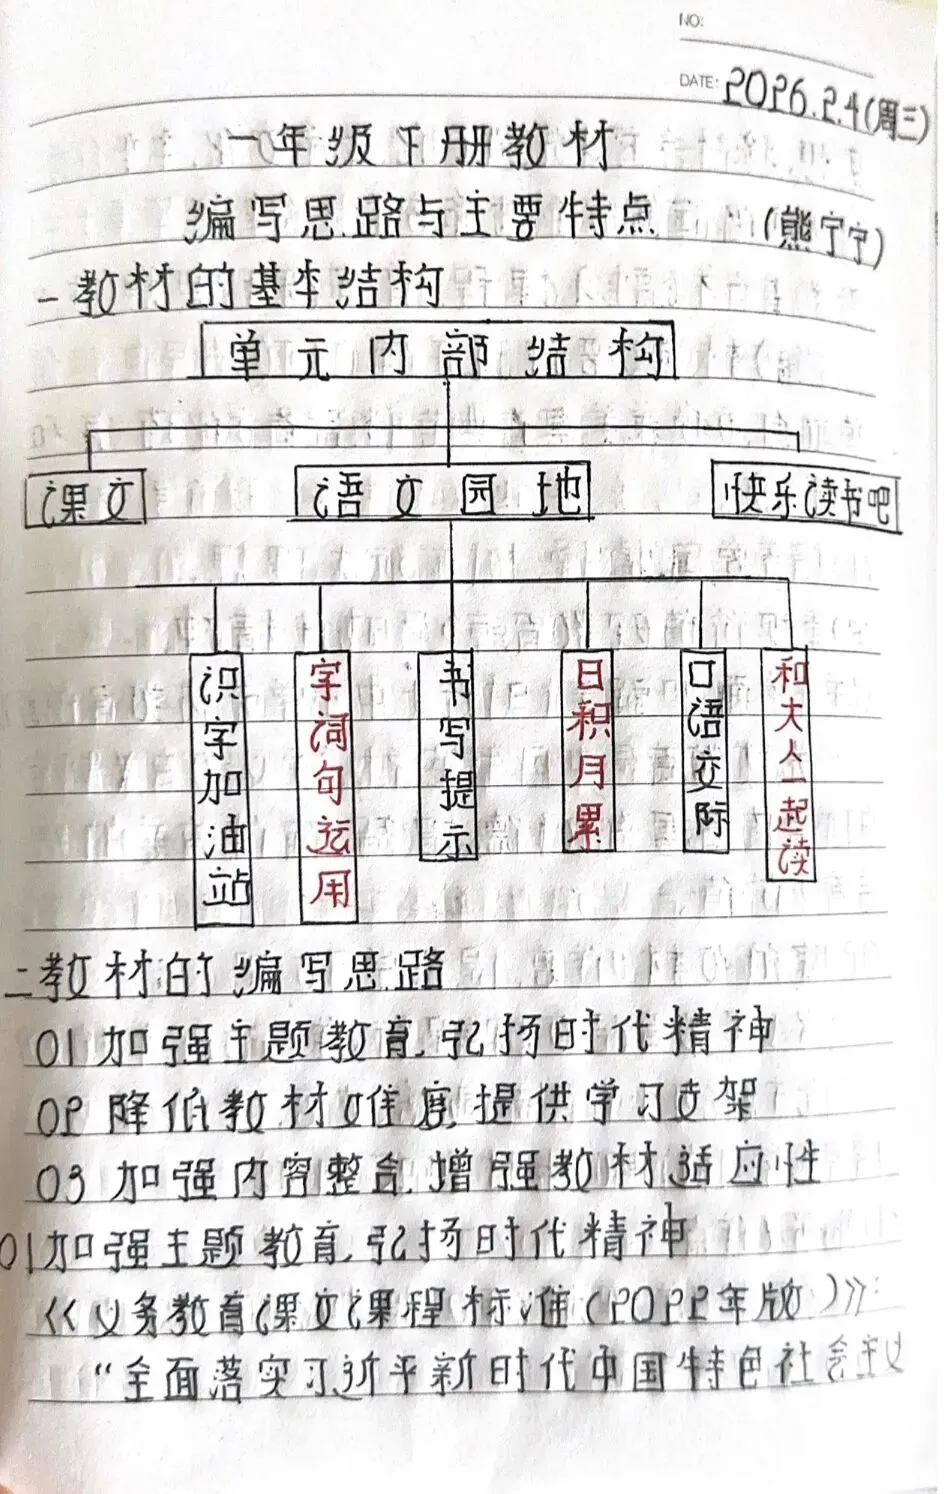 NO:
DATE: 2026.2.4(周三)
一年级下册教材
编写思路与主要特点 (熊宁宁)
一教材的基本结构
单元内部结构
课文 语文园地 快乐读书吧
识字加油站 字词句运用 书写提示 日积月累 口语交际 和大人一起读
二教材的编写思路
01加强主题教育,弘扬时代精神
02降低教材难度,提供学习支架
03加强内容整合,增强教材适应性
01加强主题教育,弘扬时代精神
《义务教育课文课程标准(2022年版)》:
“全面落实习近平新时代中国特色社会主义